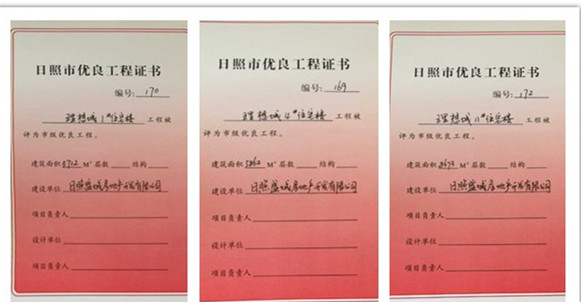 日照市优良工程证书
编号: 170
理想城1#住宅楼 工程被
评为市级优良工程。
建筑面积 M² 层数 结构
建设单位 日照盛城房地产开发有限公司
项目负责人
设计单位
项目负责人
日照市优良工程证书
编号: 169
理想城4#住宅楼 工程被
评为市级优良工程。
建筑面积 M² 层数 结构
建设单位 日照盛城房地产开发有限公司
项目负责人
设计单位
项目负责人
日照市优良工程证书
编号: 172
理想城11#住宅楼 工程被
评为市级优良工程。
建筑面积 M² 层数 结构
建设单位 日照盛城房地产开发有限公司
项目负责人
设计单位
项目负责人